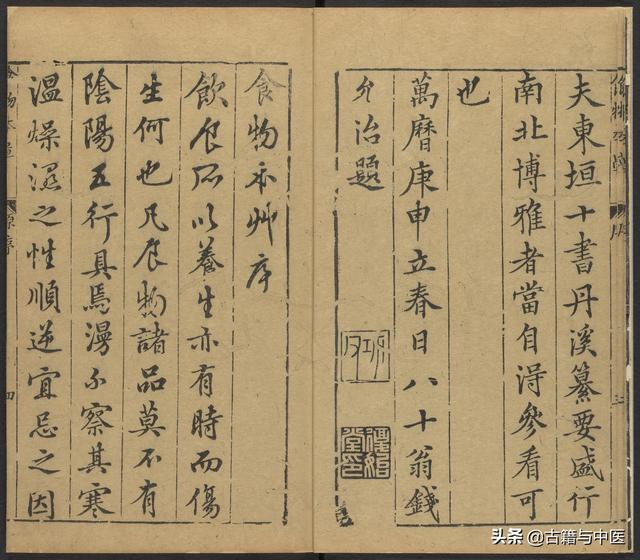 夫東垣十書丹溪纂要盛行
南北博雅者當自淂參看可
也
萬曆庚申立春日八十翁錢
允治題
食物本艸序
飲食所以養生亦有時而傷
生何也凡食物諸品莫不有
陰陽五行具焉漫不察其寒
溫燥濕之性順逆宜忌之因
三
四
头条 @古籍与中医